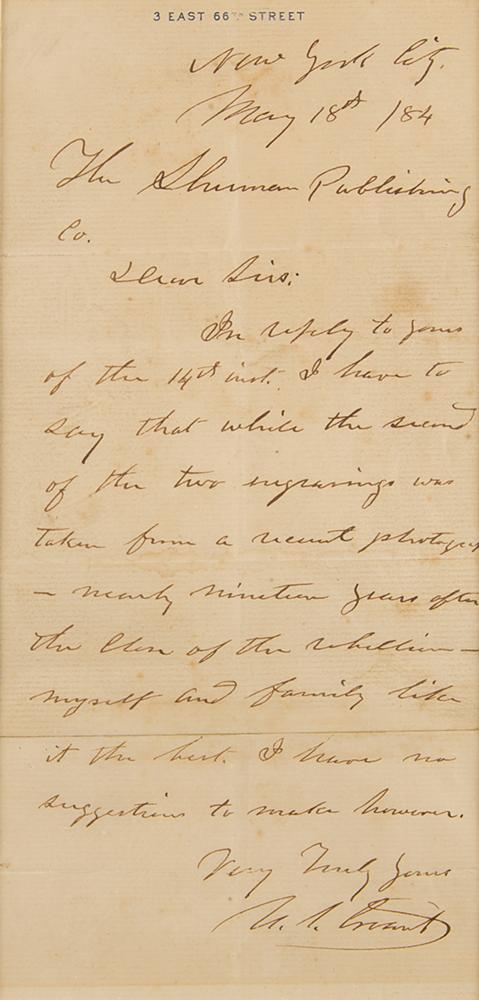 3 EAST 66TH STREET
New York City.
May 18th /84
The Sherman Publishing
Co.
Dear Sirs:
In reply to yours
of the 14th inst. I have to
say that while the second
of the two engravings was
taken from a recent photograph
— nearly nineteen years after
the close of the rebellion —
myself and family like
it the best. I have no
suggestions to make however.
Very Truly Yours
U. S. Grant